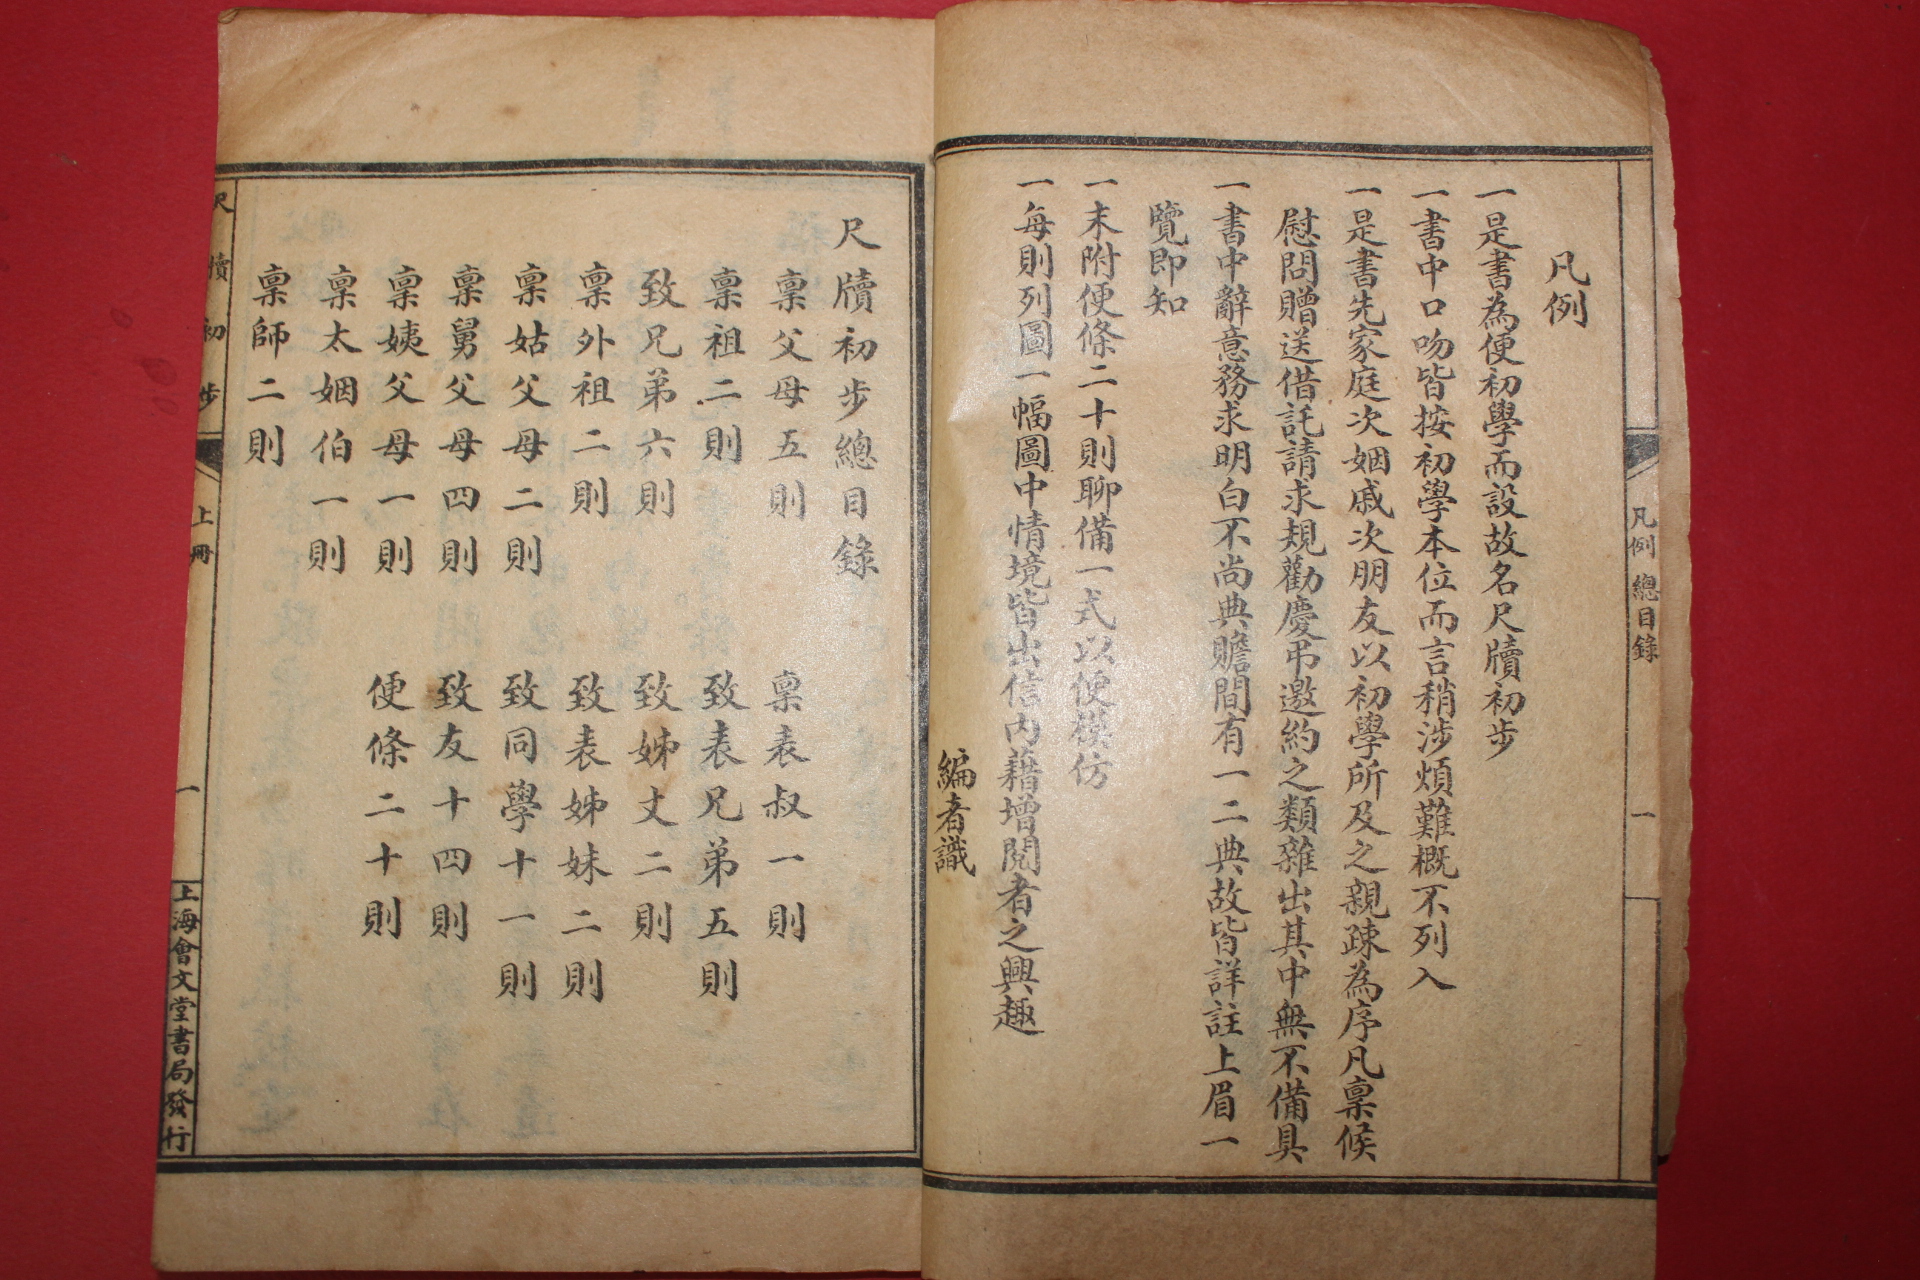 凡例
一是書為便初學而設故名尺牘初步
一書中口吻皆按初學本位而言稍涉煩難概不列入
一是書先家庭次姻戚次朋友以初學所及之親疎為序凡稟候
慰問贈送借託請求規勸慶弔邀約之類雜出其中無不備具
一書中辭意務求明白不尚典贍間有一二典故皆詳註上眉一
覽即知
一末附便條二十則聊備一式以便模仿
一每則列圖一幅圖中情境皆出信內藉增閱者之興趣
編者識
凡例 總目錄 一
尺牘初步總目錄
稟父母五則
稟祖二則
致兄弟六則
稟外祖二則
稟姑父母二則
稟舅父母四則
稟姨父母一則
稟太姻伯一則
稟師二則
稟表叔一則
致表兄弟五則
致姊丈二則
致表姊妹二則
致同學十一則
致友十四則
便條二十則
尺牘初步 上冊 一 上海會文堂書局發行